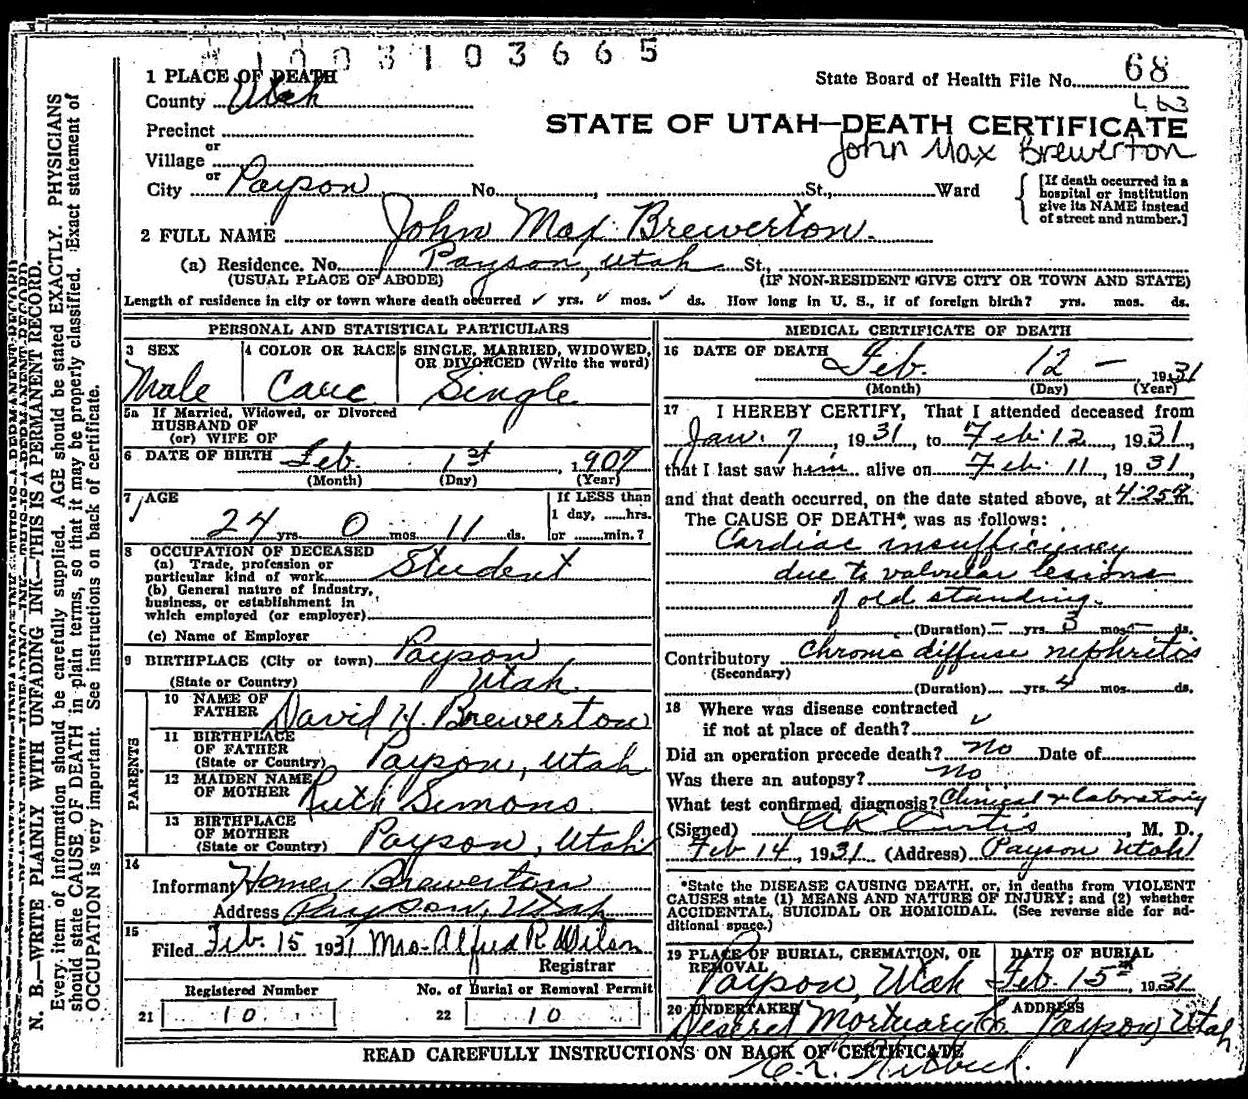 1003103665
State Board of Health File No. 68
STATE OF UTAH—DEATH CERTIFICATE
John Max Brewerton
1 PLACE OF DEATH
County Utah
Precinct
or
Village
or
City Payson No. St., Ward
[If death occurred in a
hospital or institution
give its NAME instead
of street and number.]
2 FULL NAME John Max Brewerton.
(a) Residence. No. Payson, Utah St.,
(USUAL PLACE OF ABODE) (IF NON-RESIDENT GIVE CITY OR TOWN AND STATE)
Length of residence in city or town where death occurred ✓ yrs. ✓ mos. ✓ ds. How long in U. S., if of foreign birth? yrs. mos. ds.
PERSONAL AND STATISTICAL PARTICULARS
3 SEX
Male
4 COLOR OR RACE
Cauc
5 SINGLE, MARRIED, WIDOWED,
OR DIVORCED (Write the word)
Single
5a If Married, Widowed, or Divorced
HUSBAND OF
(or) WIFE OF
6 DATE OF BIRTH Feb. 1st, 1907
(Month) (Day) (Year)
7 AGE
24 yrs 0 mos. 11 ds.
If LESS than
1 day, ......hrs.
or ......min.?
8 OCCUPATION OF DECEASED
(a) Trade, profession or
particular kind of work Student
(b) General nature of Industry,
business, or establishment in
which employed (or employer)
(c) Name of Employer
9 BIRTHPLACE (City or town) Payson
(State or Country) Utah.
PARENTS
10 NAME OF
FATHER David H. Brewerton
11 BIRTHPLACE
OF FATHER
(State or Country) Payson, Utah
12 MAIDEN NAME
OF MOTHER Ruth Simons.
13 BIRTHPLACE
OF MOTHER
(State or Country) Payson, Utah
14
Informant Homer Brewerton
Address Payson, Utah
15
Filed Feb. 15 1931 Mrs. Alfred R Wilson
Registrar
Registered Number
21 10
No. of Burial or Removal Permit
22 10
MEDICAL CERTIFICATE OF DEATH
16 DATE OF DEATH Feb. 12 — 1931
(Month) (Day) (Year)
17 I HEREBY CERTIFY, That I attended deceased from
Jan. 7, 1931, to Feb. 12, 1931,
that I last saw him alive on Feb. 11, 1931,
and that death occurred, on the date stated above, at 4:25 m.
The CAUSE OF DEATH* was as follows:
Cardiac insufficiency
due to valvular lesions
of old standing.
(Duration) — yrs. 3 mos. — ds.
Contributory Chronic diffuse nephritis
(Secondary)
(Duration) yrs. 4 mos. ds.
18 Where was disease contracted
if not at place of death? ✓
Did an operation precede death? No Date of
Was there an autopsy? No
What test confirmed diagnosis? Clinical & Laboratory
(Signed) Curtis, M. D.
Feb 14, 1931 (Address) Payson Utah
*State the DISEASE CAUSING DEATH, or, in deaths from VIOLENT
CAUSES state (1) MEANS AND NATURE OF INJURY; and (2) whether
ACCIDENTAL, SUICIDAL OR HOMICIDAL. (See reverse side for ad-
ditional space.)
19 PLACE OF BURIAL, CREMATION, OR
REMOVAL
Payson, Utah
DATE OF BURIAL
Feb. 15th, 1931
20 UNDERTAKER
Deseret Mortuary Co.
ADDRESS
Payson, Utah
READ CAREFULLY INSTRUCTIONS ON BACK OF CERTIFICATE
N. B.—WRITE PLAINLY WITH UNFADING INK—THIS IS A PERMANENT RECORD.
Every item of information should be carefully supplied. AGE should be stated EXACTLY. PHYSICIANS
should state CAUSE OF DEATH in plain terms, so that it may be properly classified. Exact statement of
OCCUPATION is very important. See instructions on back of certificate.